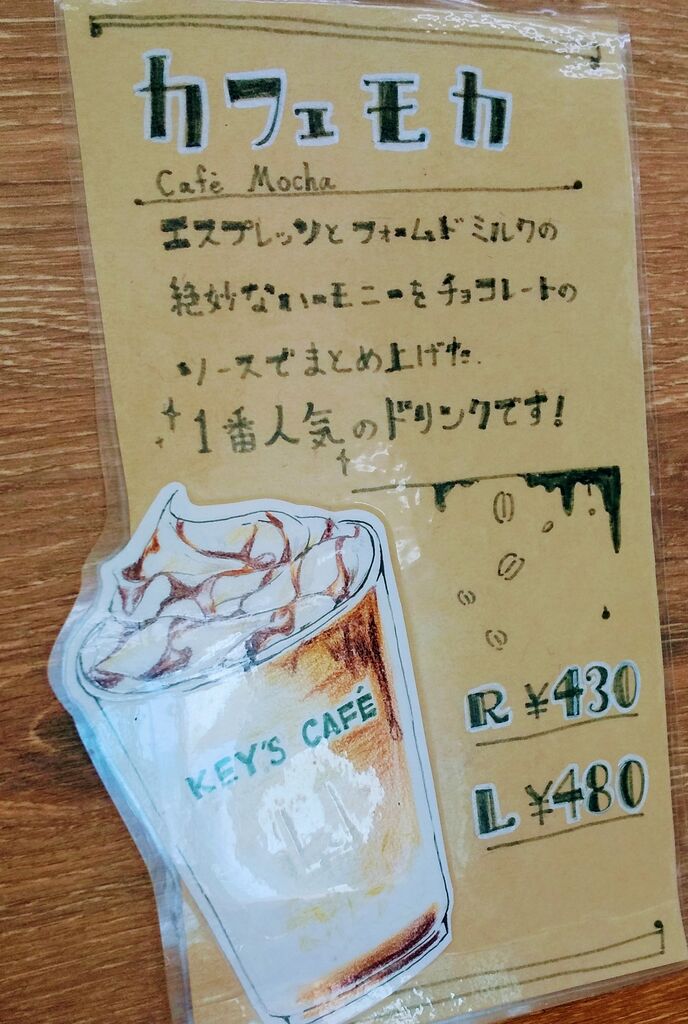 カフェモカ
Cafè Mocha
エスプレッソとフォームドミルクの
絶妙なハーモニーをチョコレートの
ソースでまとめ上げた.
1番人気のドリンクです!
KEY'S CAFÉ
R ¥430
L ¥480